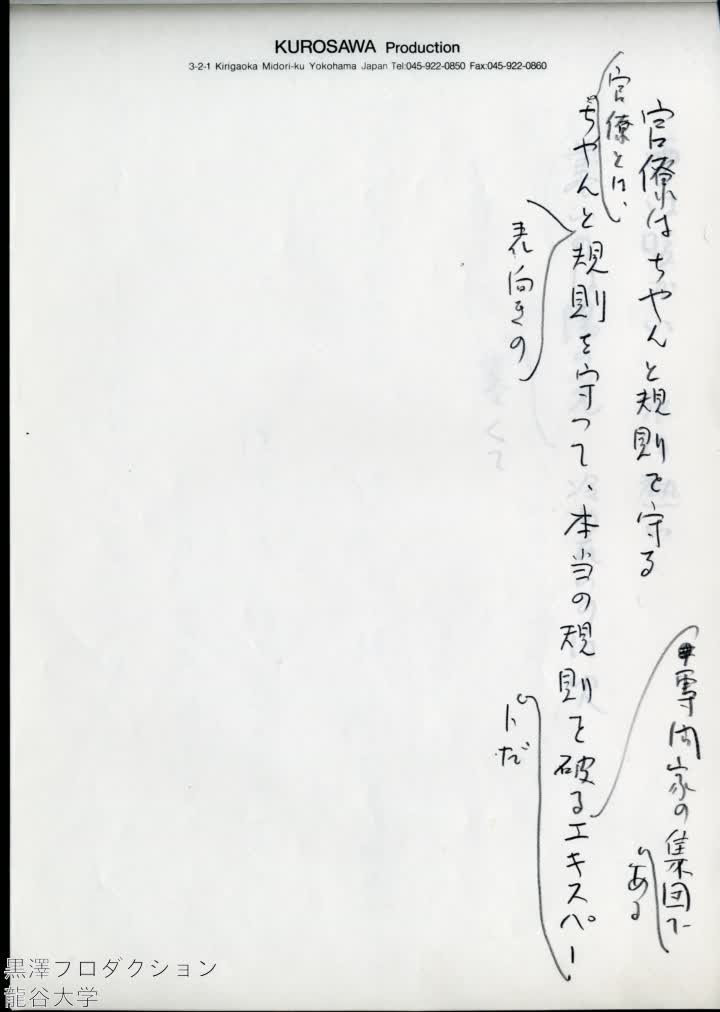 KUROSAWA Production
3-2-1 Kirigaoka Midori-ku Yokohama Japan Tel:045-922-0850 Fax:045-922-0860
官僚はちやんと規則を守る
官僚とは、
ちやんと規則を守つて、本当の規則を破るエキスパー
トだ
表向きの
専門家の集団だ
ある
黒澤プロダクション
龍谷大学